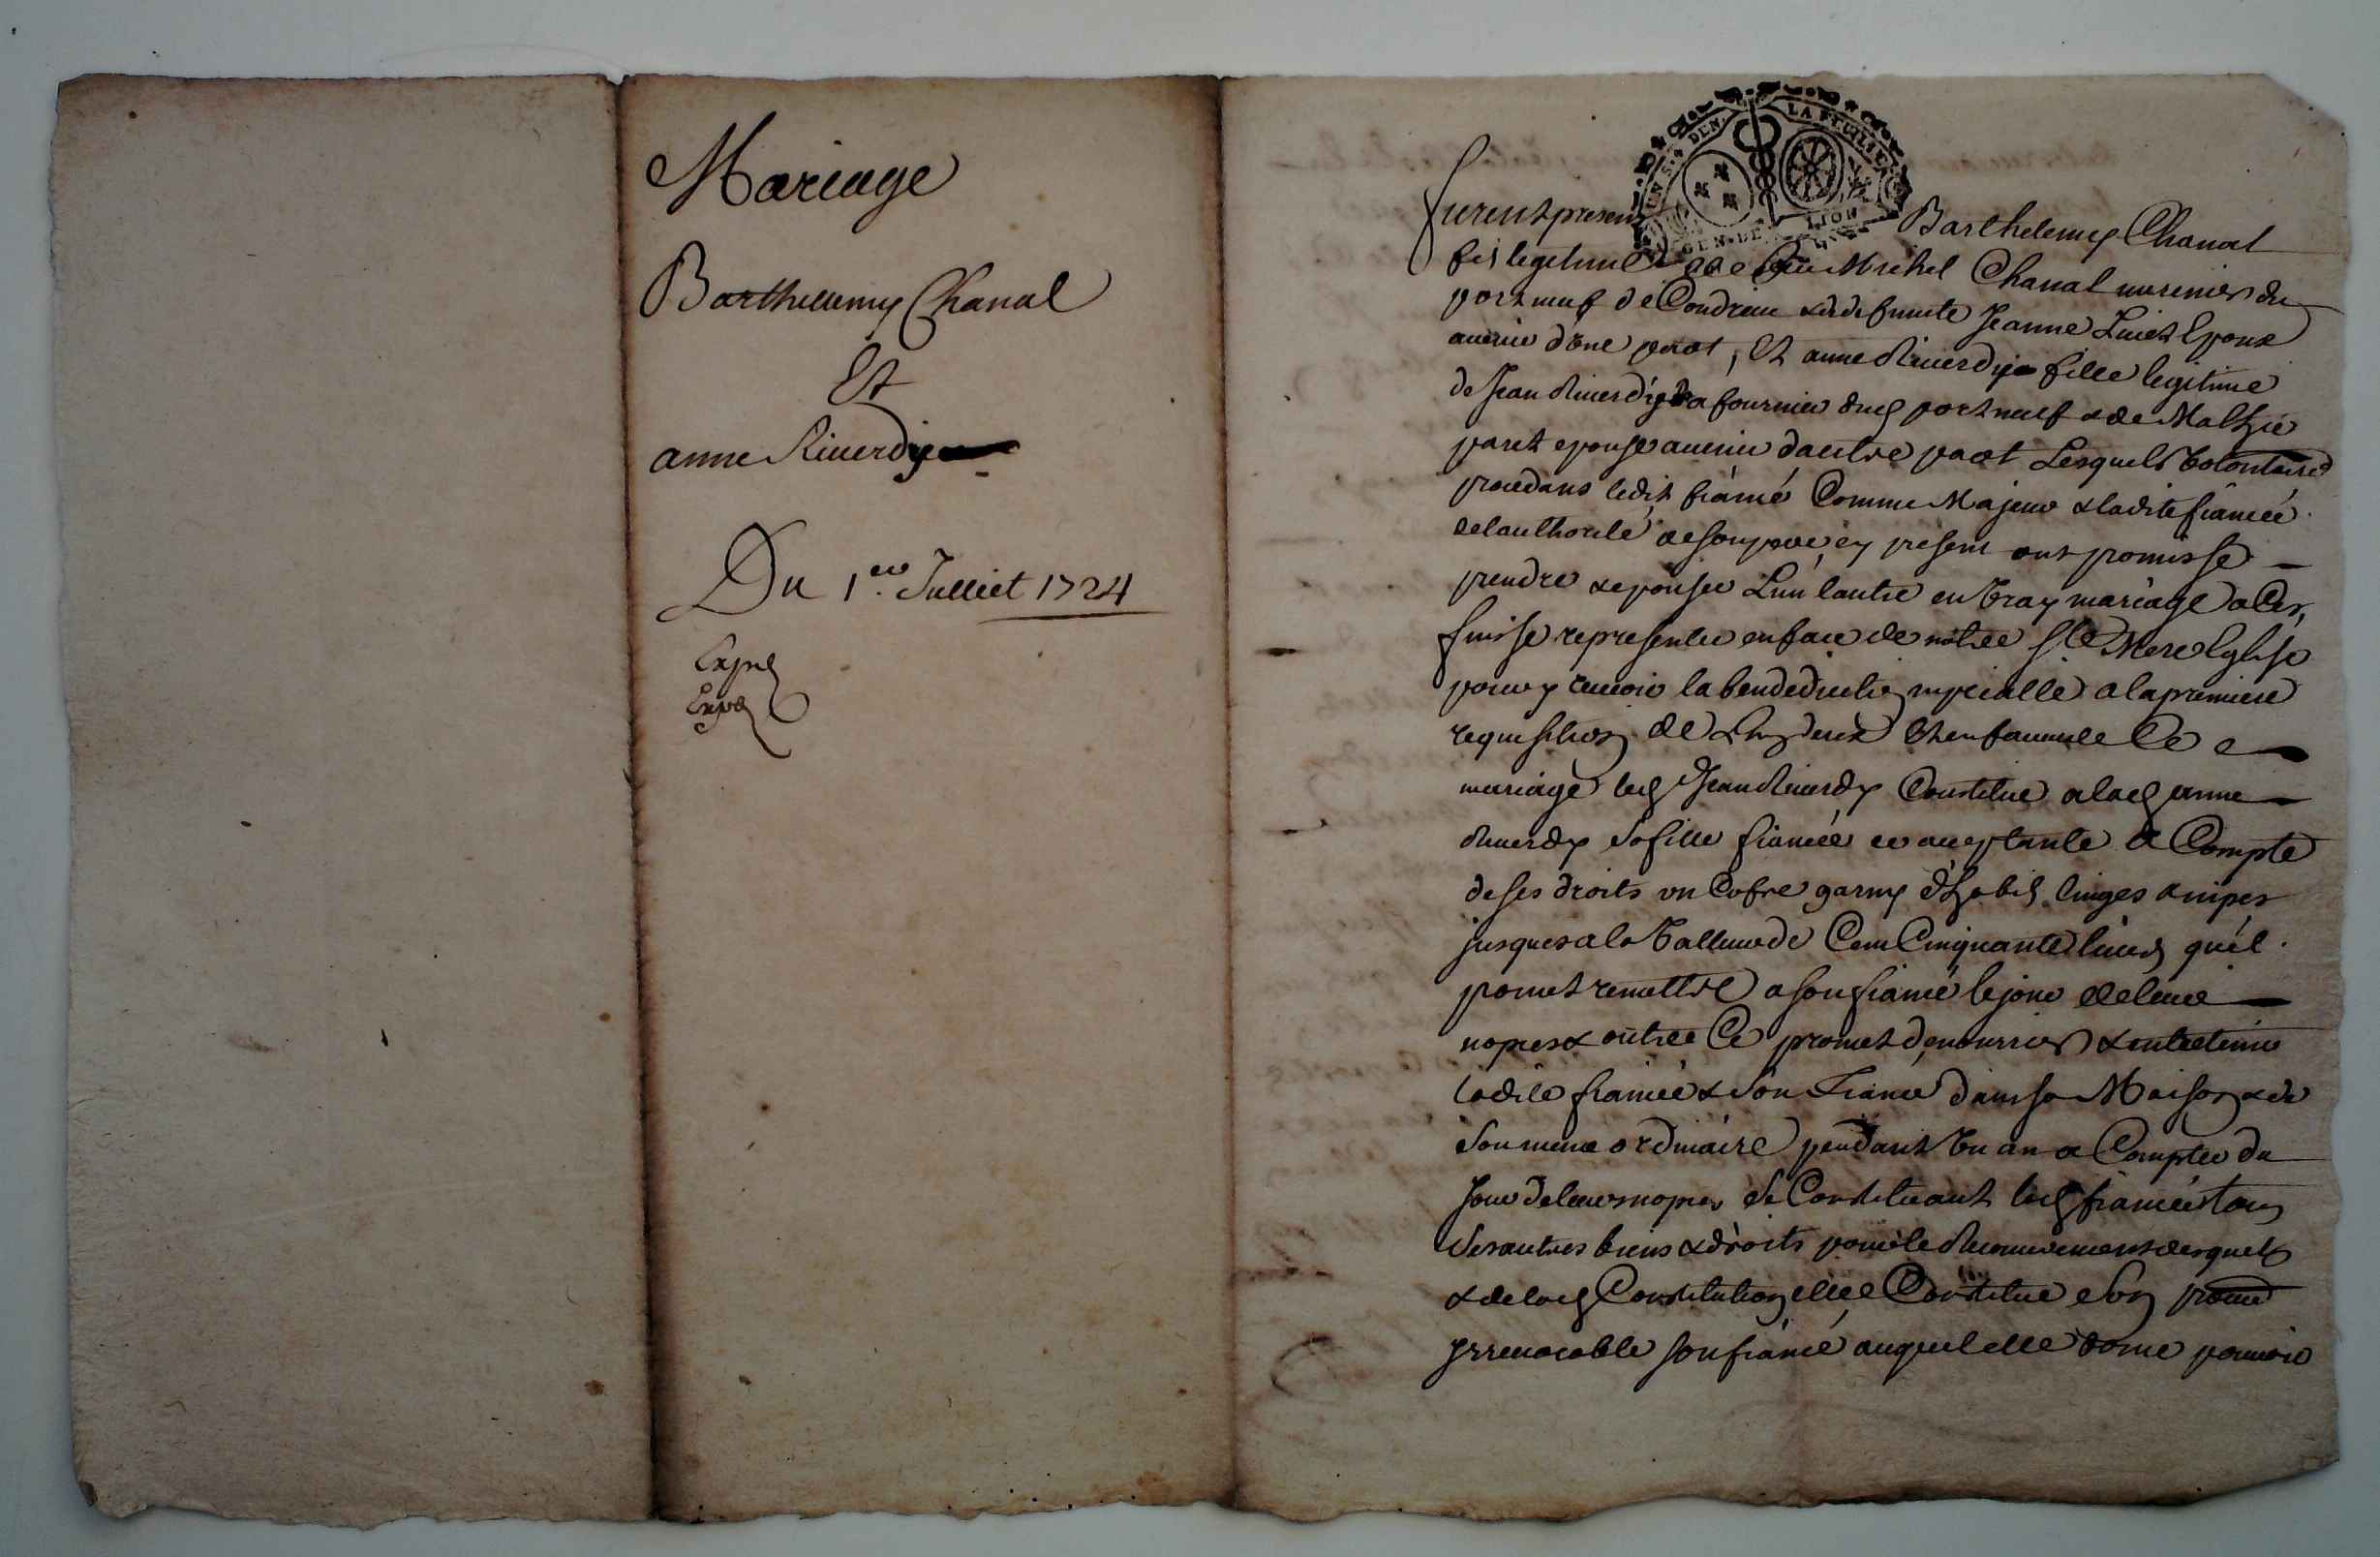 Mariage
Barthelemy Chanal
Et
anne Riverdy
Du 1er Julliet 1724
Expé
Expé
UN S. 4 DEN. LA FEUILLE
GEN. DE LION
furent presens Barthelemy Chanal
fils legitime de feu Michel Chanal marinier du
port neuf de Condrieu & de defunte Jeanne Epoux
avenir d'une part, Et anne Riverdy fille legitime
de Jean Riverdy fournier dud port neuf & de
paret epouse avenir dautre part Lesquels Volontaires
procedans ledit fiancé Comme Majeur & ladite fiancée
de lauthorité de son pere cy present ont promis se
prendre & epouser Lun lautre en Vray mariage a Ces
fins se representer en face de notre Ste Mere Eglise
pour y recevoir la benedediction nupcialle a la premiere
requisition de Lun deux Et en faveur de Ce
mariage led Jean Riverdy Constitue a lad anne
Riverdy sa fille fiancée ce acceptante a Compte
de ses droits un Cofre garny d'habis linges & nipes
jusques a la Valleur de Cent Cinquante livres qu'il
promet remettre a son fiancé le jour de leur
nopces & outre Ce promet de nourrir & entretenir
ladite fiancée & son fiancé dans sa Maison & de
son meme ordinaire pendant Vn an a Compter du
Jour de leurs nopces se Constituant lad fiancée tous
ses autres biens & droits pour le Recouvrement desquels
& de lad Constitution elle Constitue son
Irrevocable son fiancé auquel elle donne pouvoir